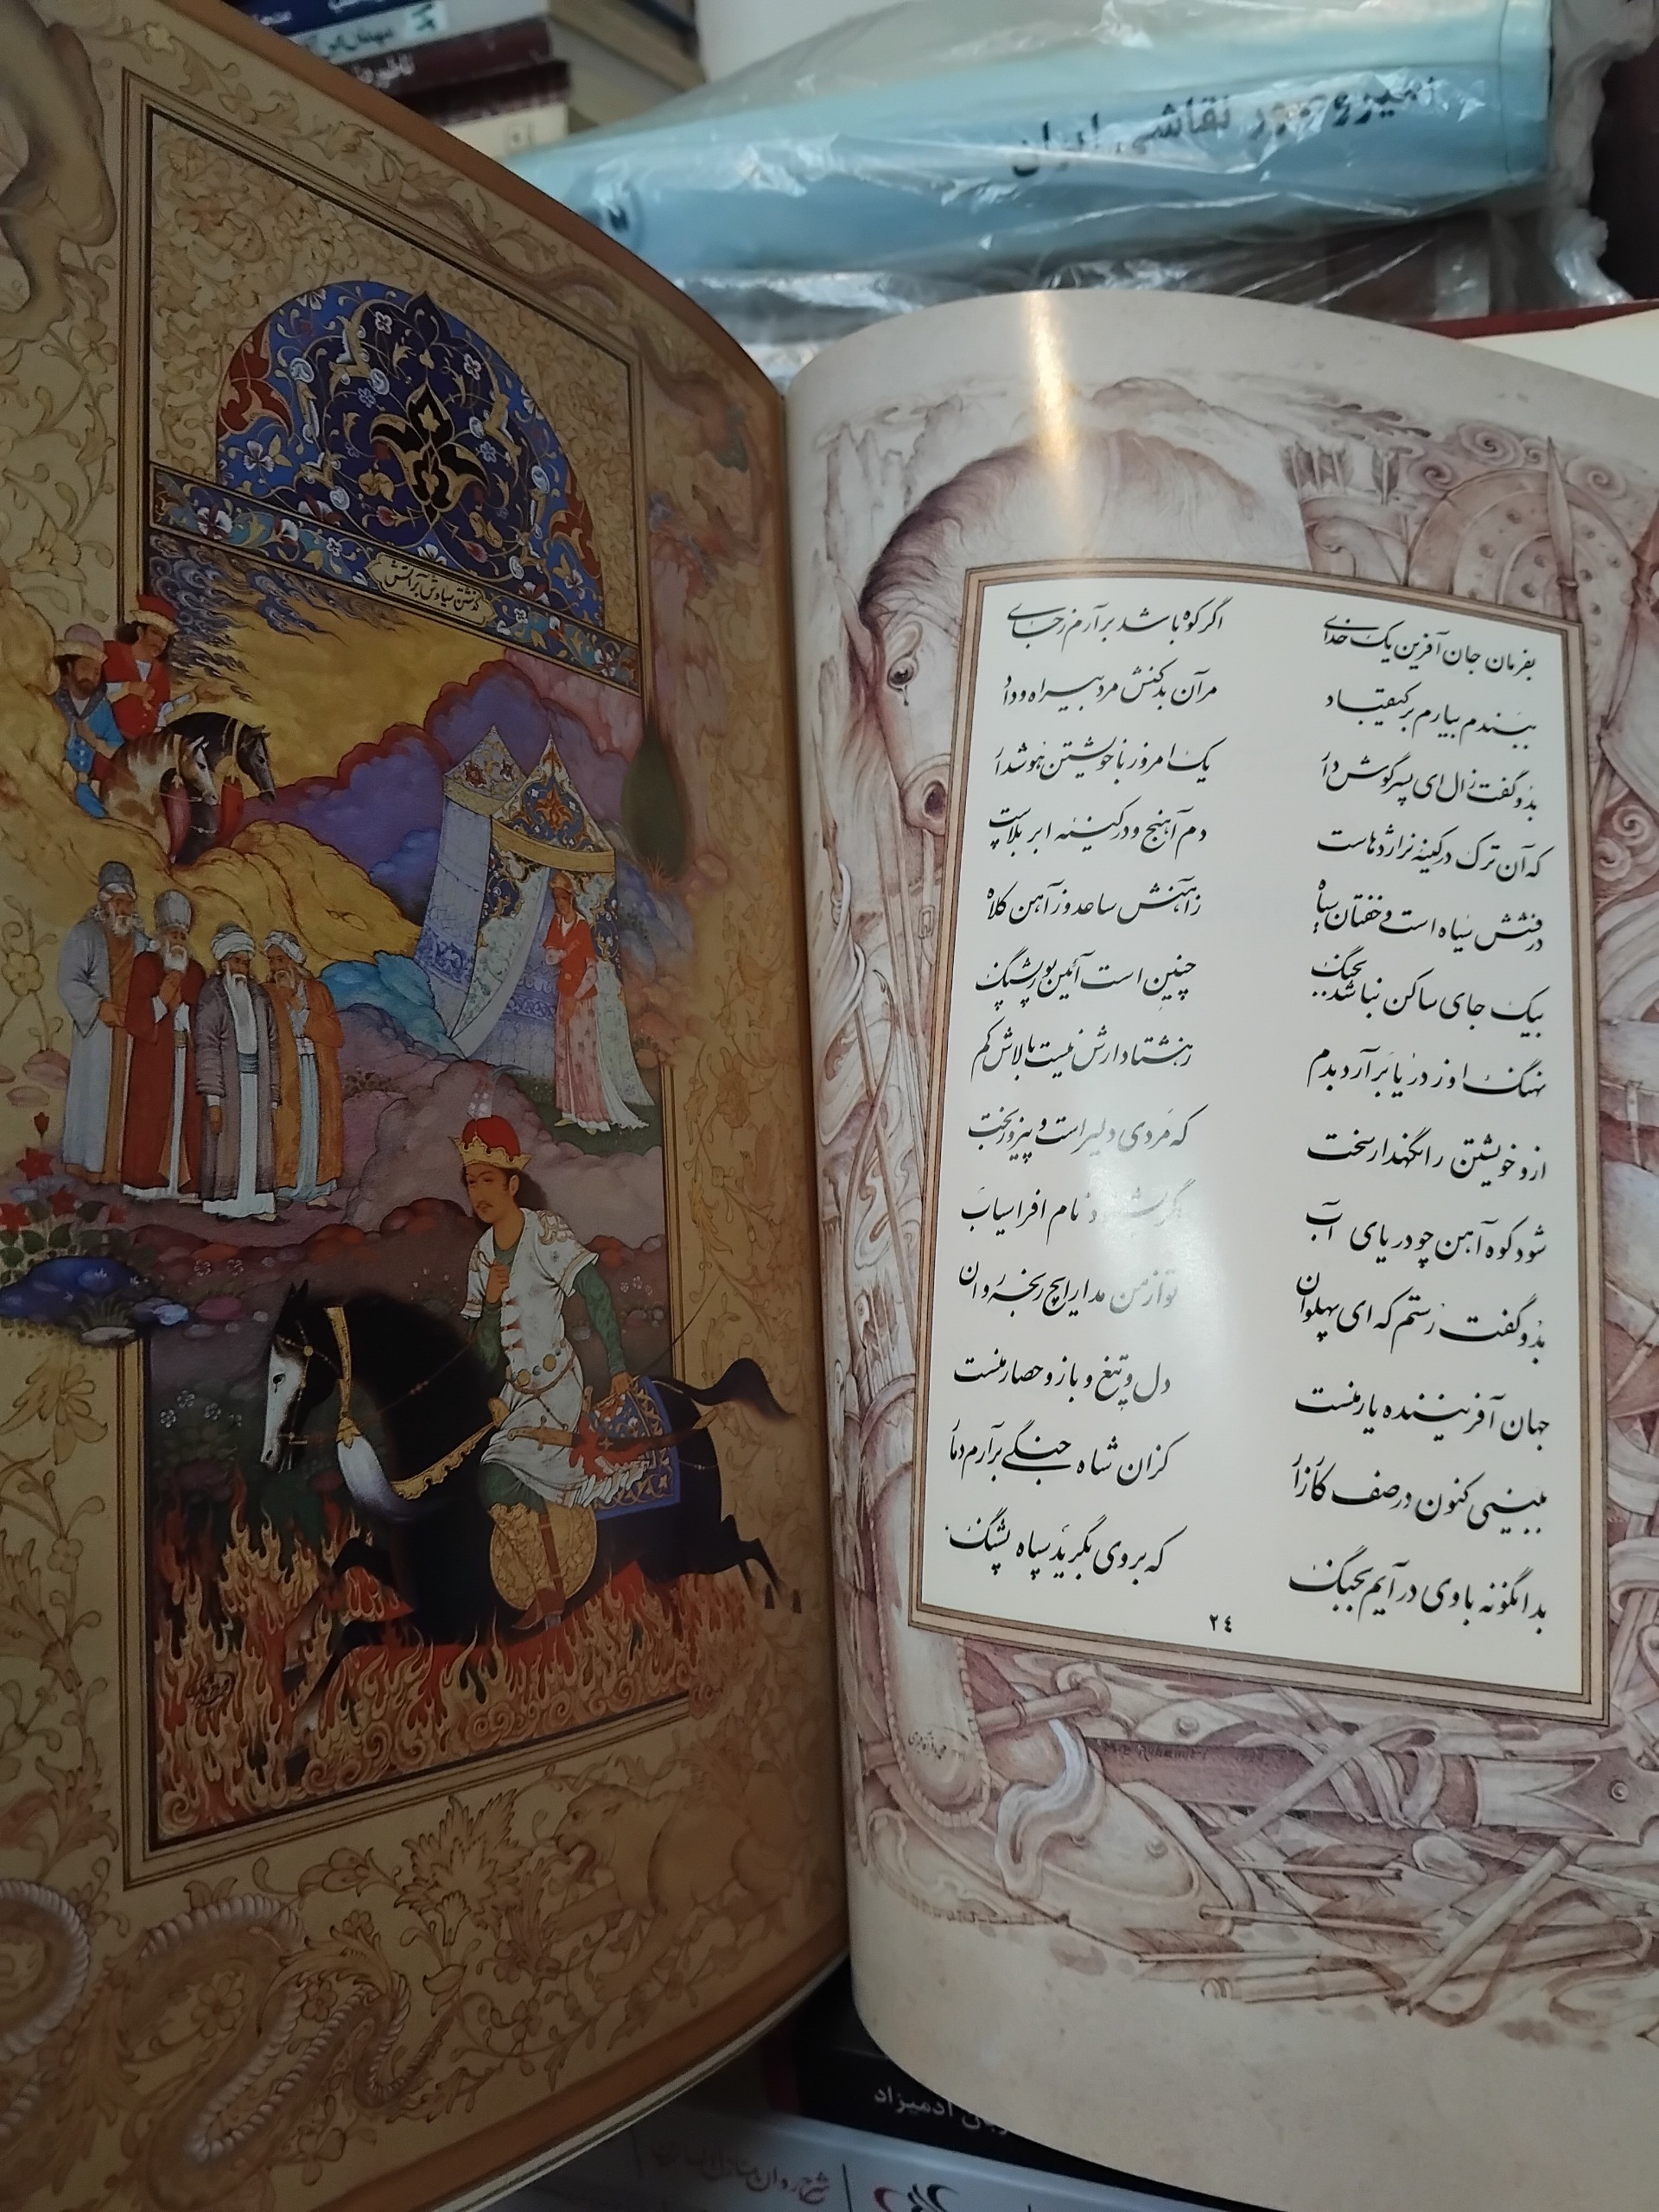 نقاشی ایران
گذشتن سیاوش بر آتش
بفرمان جان آفرین یک خدای اگر کوه باشد برآرم ز جای
ببندم بیارم بر کیقباد مر آن بدکنش مرد بیراه و داد
بدو گفت زال ای پسر گوش دار یک امروز با خویشتن هوش دار
که آن ترک در کینه نر اژدهاست دم آهنج و در کینه ابر بلاست
درفشش سیاه است و خفتان سیاه ز آهنش ساعد وز آهن کلاه
بیک جای ساکن نباشد بجنگ چنین است آئین پور پشنگ
نهنگ او ز دریا برآرد بدم ز هشتاد ارش نیست بالاش کم
ازو خویشتن را نگهدار سخت که مردی دلیر است و پیروز بخت
شود کوه آهن چو دریای آب اگر بشنود نام افراسیاب
بدو گفت رستم که ای پهلوان تو از من مدار ایچ رنجه روان
جهان آفریننده یار منست دل و تیغ و بازو حصار منست
ببینی کنون در صف کارزار کزان شاه جنگی برآرم دمار
بدانگونه با وی درآیم بجنگ که بروی بگرید سپاه پشنگ
٢٤
آدمیزاد